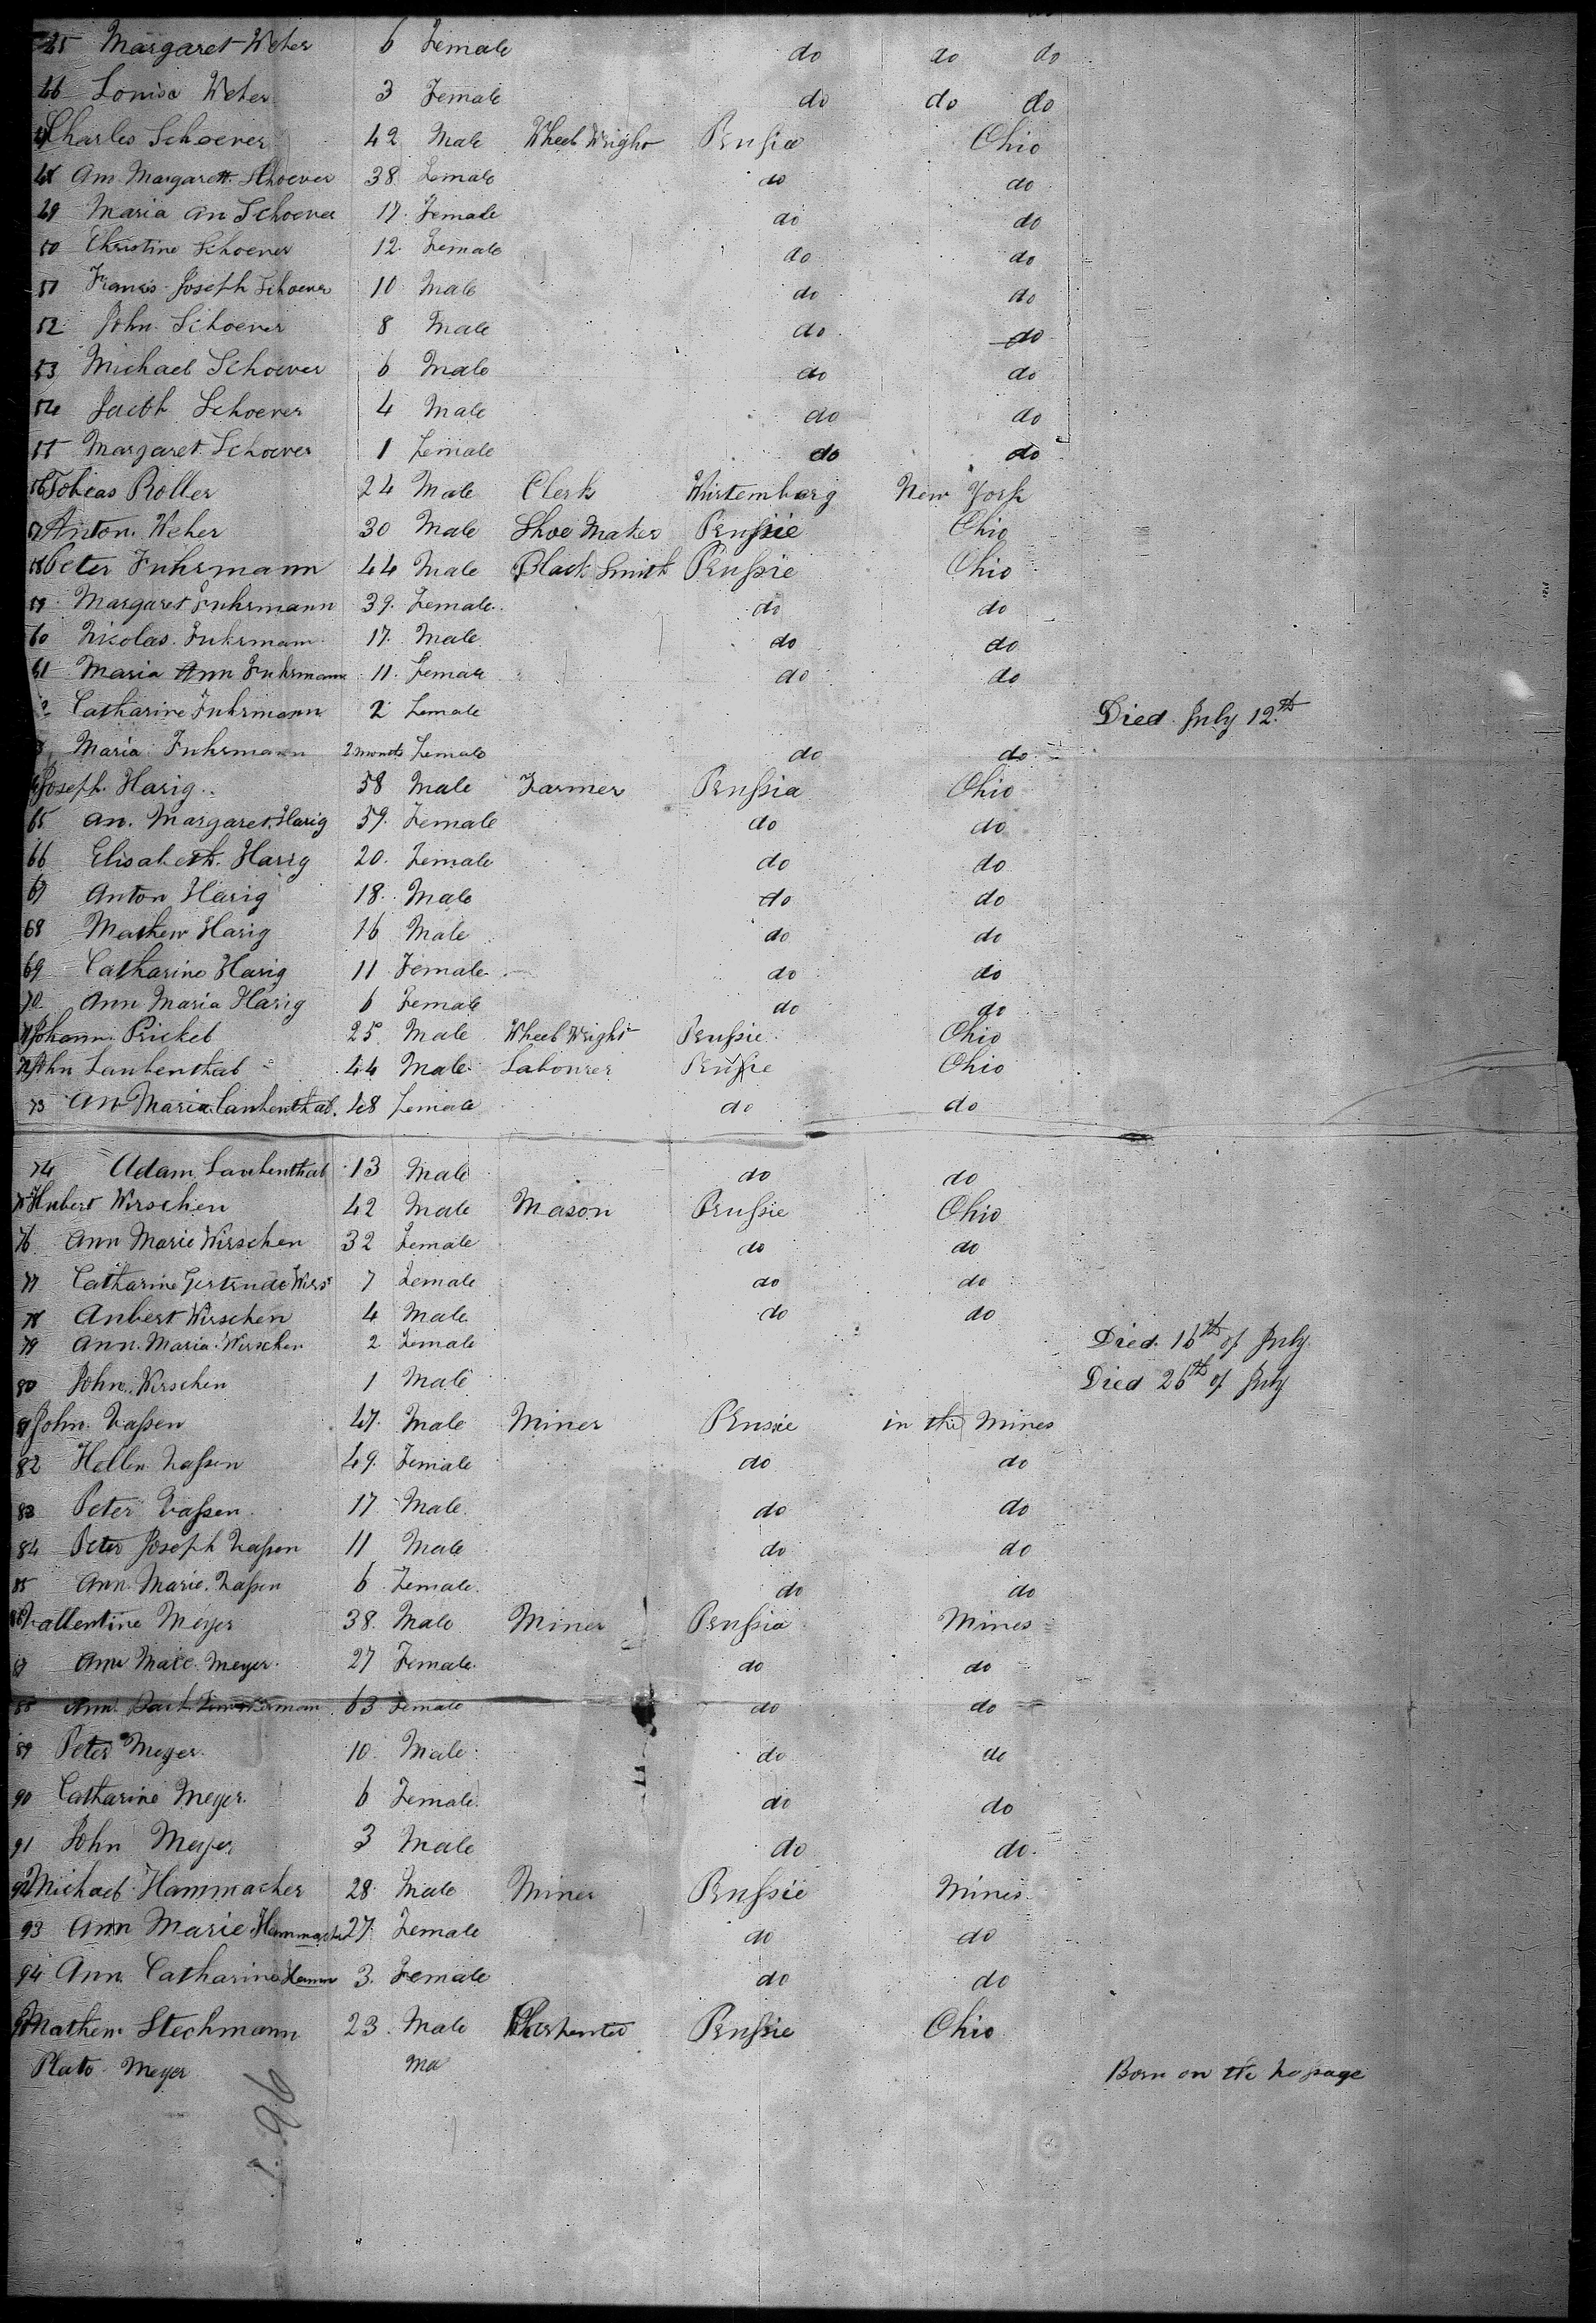 45 Margaret Weber 6 Female do do do
46 Louisa Weber 3 Female do do do
47 Charles Schoever 42 Male Wheel Wright Prussia Ohio
48 Ann Margarett Schoever 38 Female do do
49 Maria An Schoever 17 Female do do
50 Christine Schoever 12 Female do do
51 Francis Joseph Schoever 10 Male do do
52 John Schoever 8 Male do do
53 Michael Schoever 6 Male do do
54 Jacob Schoever 4 Male do do
55 Margaret Schoever 1 Female do do
56 Tobias Roller 24 Male Clerk Wurtemberg New York
57 Anton Weber 30 Male Shoe Maker Prussie Ohio
58 Peter Fuhrmann 44 Male Black Smith Prussie Ohio
59 Margaret Fuhrmann 39 Female do do
60 Nicolas Fuhrmann 17 Male do do
61 Maria Ann Fuhrmann 11 Female do do
2 Catharine Fuhrmann 2 Female Died July 12th
3 Maria Fuhrmann 2 months Female do do
64 Joseph Harig 58 Male Farmer Prussia Ohio
65 An. Margaret Harig 59 Female do do
66 Elisabeth Harig 20 Female do do
67 Anton Harig 18 Male do do
68 Mathew Harig 16 Male do do
69 Catharine Harig 11 Female do do
70 Ann Maria Harig 6 Female do do
71 Johann Prickel 25 Male Wheel Wright Prussie Ohio
72 John Laubenthal 44 Male Labourer Prussie Ohio
73 An Maria Laubenthal 48 Female do do
74 Adam Laubenthal 13 Male do do
75 Hubert Wirschen 42 Male Mason Prussie Ohio
76 Ann Marie Wirschen 32 Female do do
77 Catharine Gertrude Wirs 7 Female do do
78 Anbert Wirschen 4 Male do do
79 Ann Maria Wirschen 2 Female Died 16th of July
80 John Wirschen 1 Male Died 26th of July
81 John Vassen 47 Male Miner Prussie in the Mines
82 Hellen Vassen 49 Female do do
83 Peter Vassen 17 Male do do
84 Peter Joseph Vassen 11 Male do do
85 Ann Marie Vassen 6 Female do do
86 Vallentine Meyer 38 Male Miner Prussia Mines
87 Ann Marie Meyer 27 Female do do
88 Ann 63 Female do do
89 Peter Meyer 10 Male do do
90 Catharine Meyer 6 Female do do
91 John Meyer 3 Male do do
92 Michael Hammacher 28 Male Miner Prussie Mines
93 Ann Marie Hammacher 27 Female do do
94 Ann Catharine Hamm 3 Female do do
95 Mathew Stechmann 23 Male Charpenter Prussie Ohio
Plato Meyer Ma Born on the passage
96